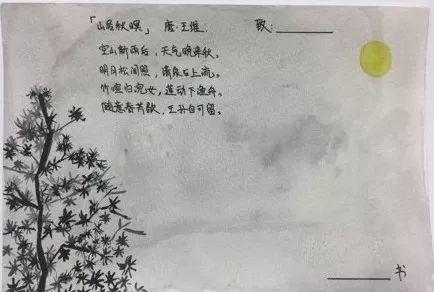 「山居秋暝」 唐·王维： 致：
空山新雨后，天气晚来秋。
明月松间照，清泉石上流。
竹喧归浣女，莲动下渔舟。
随意春芳歇，王孙自可留。
书